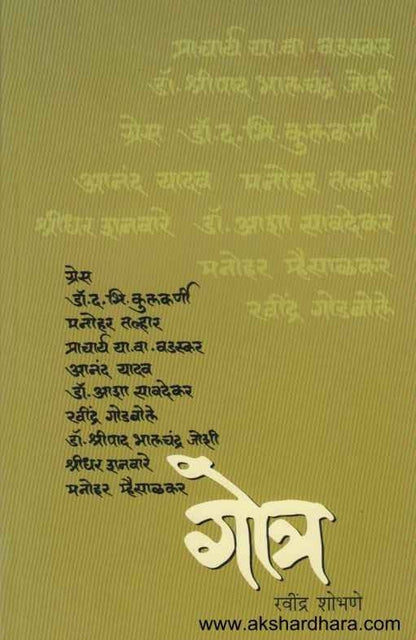 प्राचार्य या. वा. वडस्कर
डॉ. श्रीपाद भालचंद्र जोशी
ग्रेस डॉ. द. भि. कुलकर्णी
आनंद यादव मनोहर तल्हार
श्रीधर शनवारे डॉ. आशा सावदेकर
मनोहर म्हैसाळकर
रवींद्र गोडबोले
ग्रेस
डॉ. द. भि. कुलकर्णी
मनोहर तल्हार
प्राचार्य या. वा. वडस्कर
आनंद यादव
डॉ. आशा सावदेकर
रवींद्र गोडबोले
डॉ. श्रीपाद भालचंद्र जोशी
श्रीधर शनवारे
मनोहर म्हैसाळकर
गोत्र
रवींद्र शोभणे
www.akshardhara.com